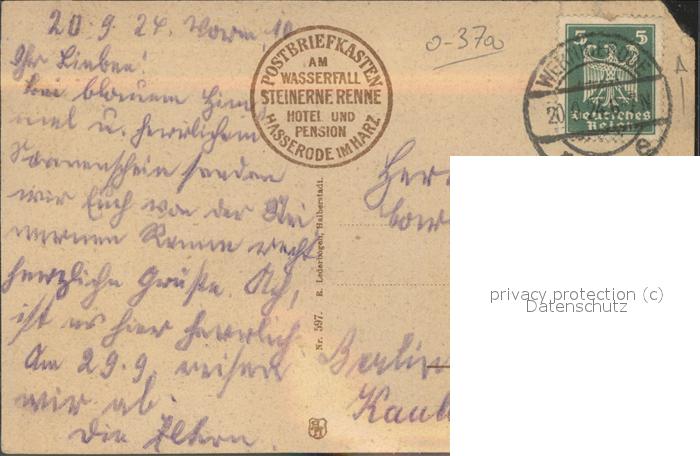 20.9.24. Vorm. 10
Ihr Lieben!
Bei blauem Him
mel u. herrlichem
Sonnenschein senden
wir Euch von der Stei
nernen Renne recht
herzliche Grüße. Ach,
ist es hier herrlich.
Am 29.9. reisen
wir ab.
Die Eltern.
POSTBRIEFKASTEN
AM
WASSERFALL
STEINERNE RENNE
HOTEL UND
PENSION
HASSERODE IM HARZ.
0-37a
5 5
Deutsches
Reich
WERNIGERODE
20
Nr. 597. R. Lederbogen, Halberstadt.
Herr
Berlin
privacy protection (c)
Datenschutz